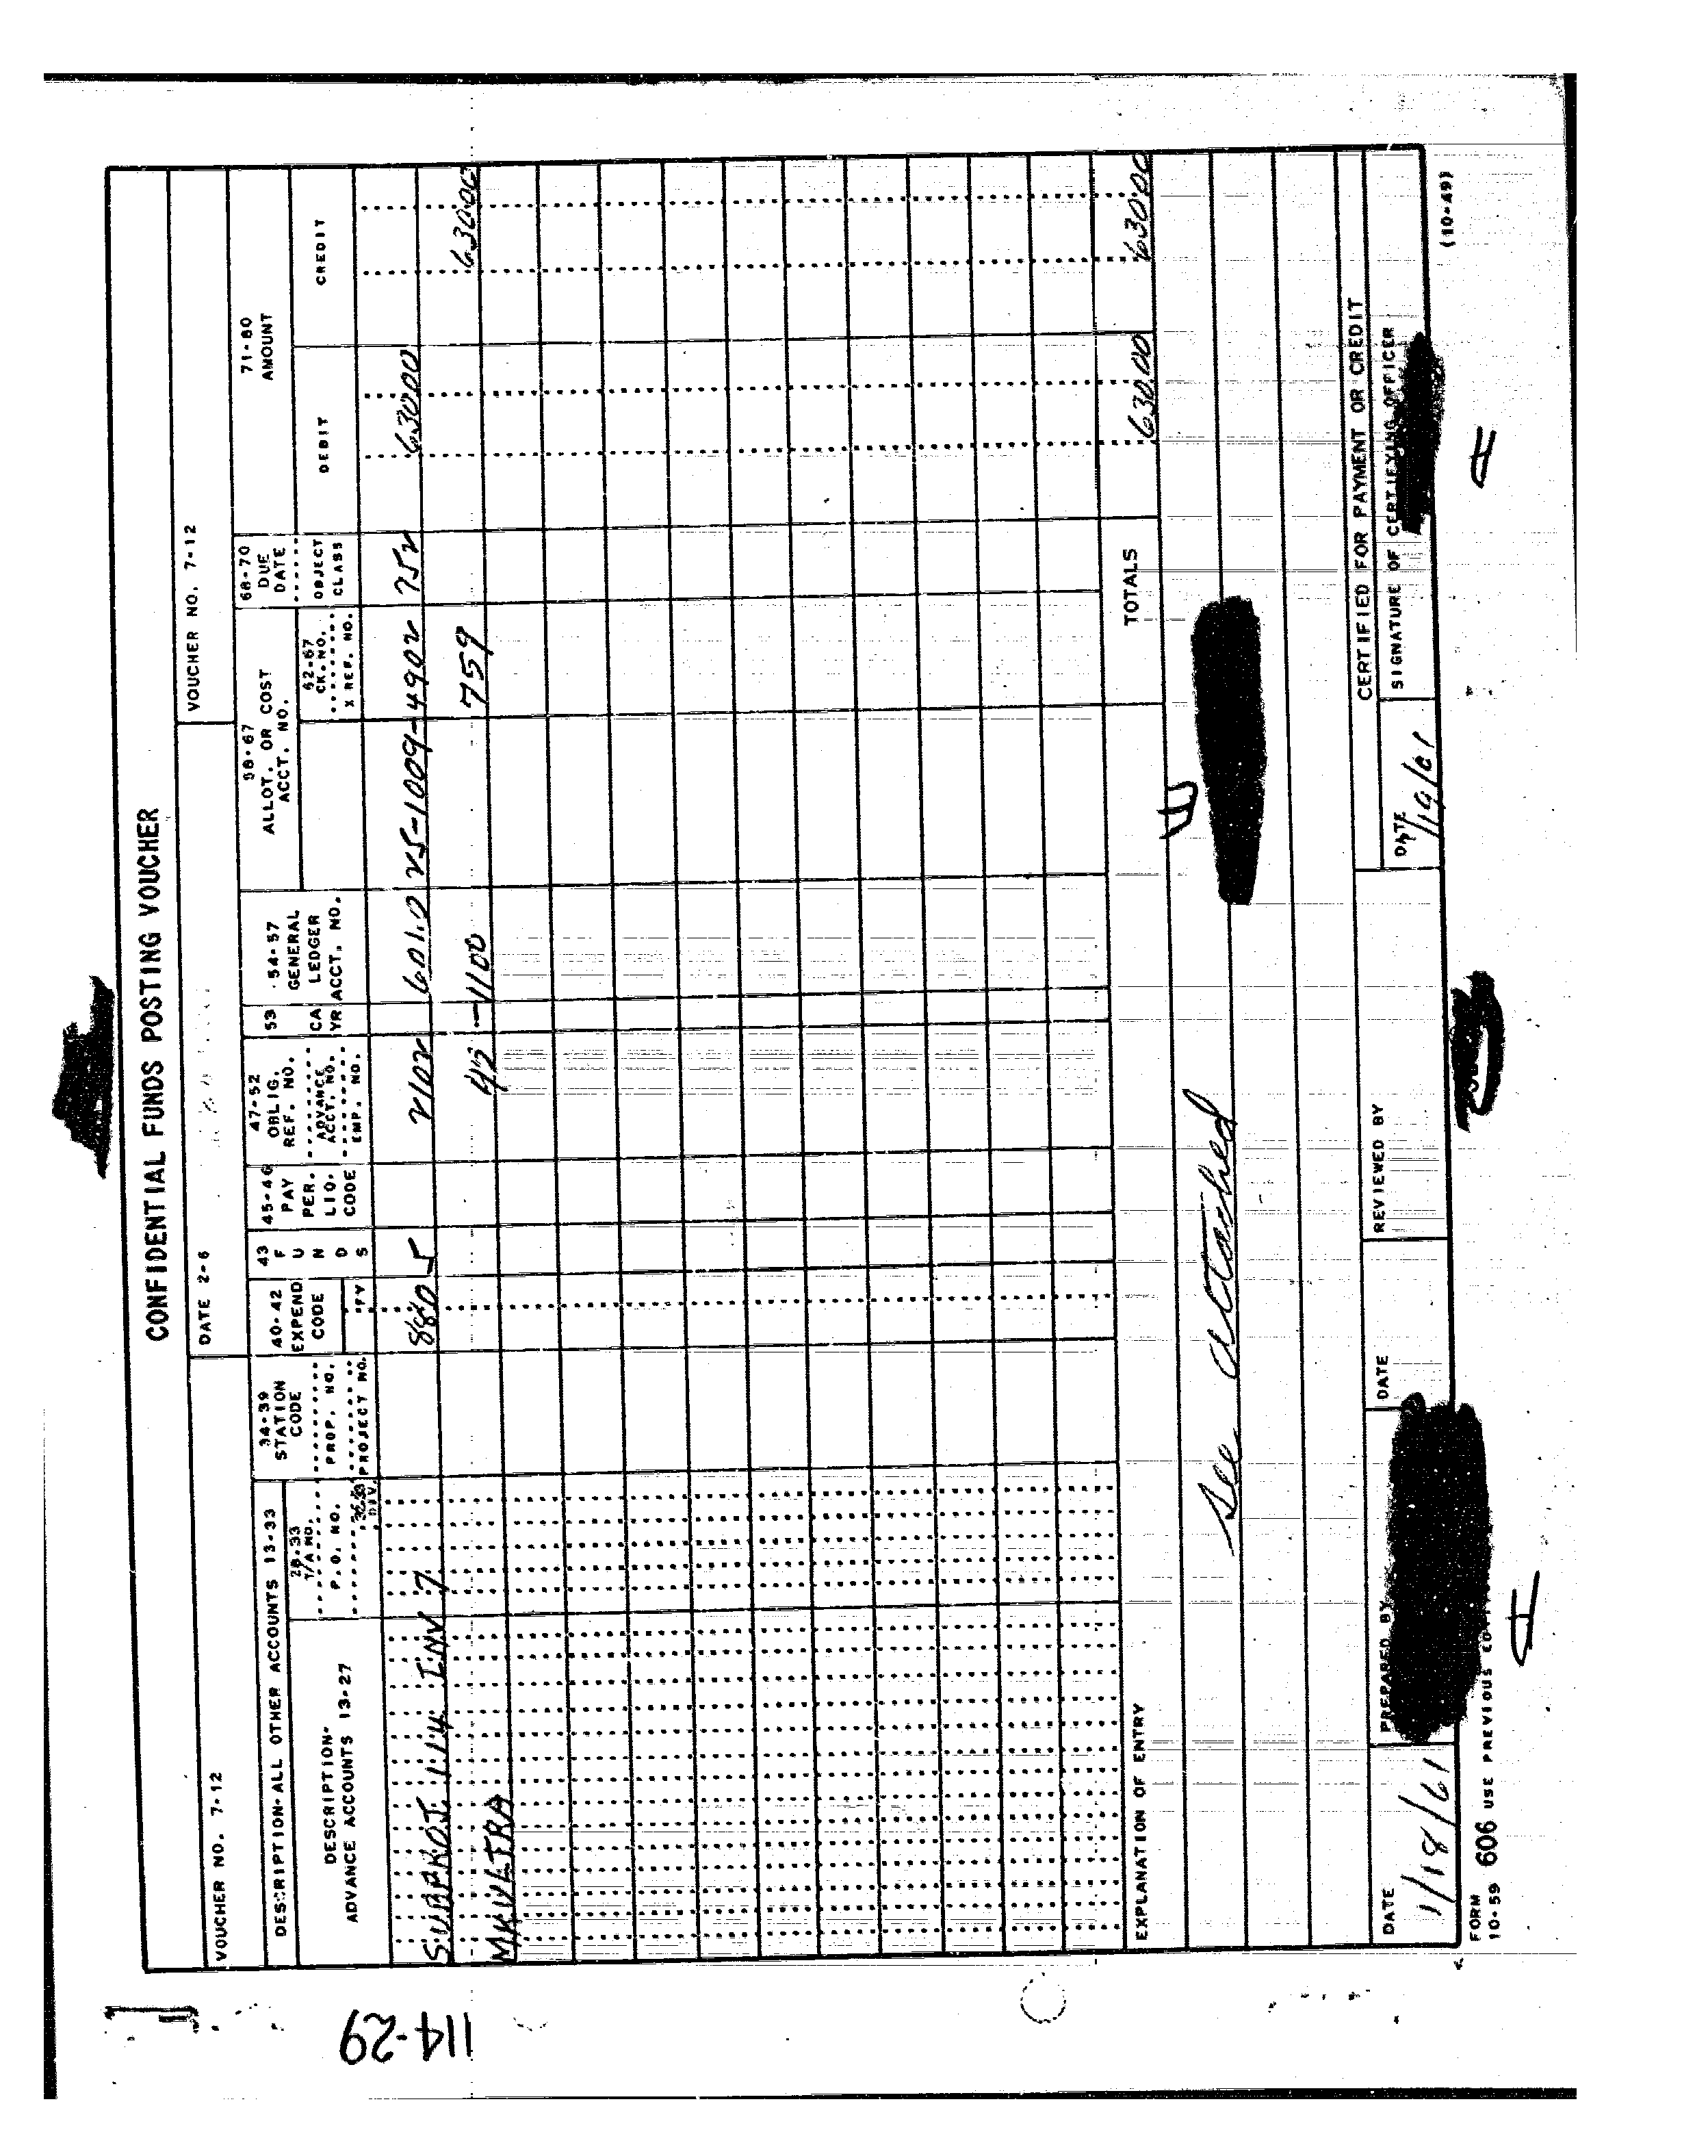 CONFIDENTIAL FUNDS POSTING VOUCHER
VOUCHER NO. 7-12
DATE 2-6
VOUCHER NO. 7-12
DESCRIPTION-ALL OTHER ACCOUNTS 13-33
DESCRIPTION-
ADVANCE ACCOUNTS 13-27
28-33
T/A NO.
P.O. NO.
DIV.
34-39
STATION
CODE
PROP. NO.
PROJECT NO.
40-42
EXPEND
CODE
FY
43
F
U
N
D
S
45-46
PAY
PER.
LIQ.
CODE
47-52
OBLIG.
REF. NO.
ADVANCE
ACCT. NO.
EMP. NO.
53
CA
YR
54-57
GENERAL
LEDGER
ACCT. NO.
58-67
ALLOT. OR COST
ACCT. NO.
62-67
CK. NO.
X REF. NO.
68-70
DUE
DATE
OBJECT
CLASS
71-80
AMOUNT
DEBIT
CREDIT
SUBPROJ. 114 INV 7 880 5 2102 601.0 25-1009-4902 752 630.00
MKULTRA 42 -1100 759 630.00
TOTALS 630.00 630.00
EXPLANATION OF ENTRY
E
See attached
CERTIFIED FOR PAYMENT OR CREDIT
DATE
1/18/61
PREPARED BY
DATE
REVIEWED BY
DATE
1/19/61
SIGNATURE OF CERTIFYING OFFICER
FORM
10-59 606 USE PREVIOUS
(10-49)
114-29